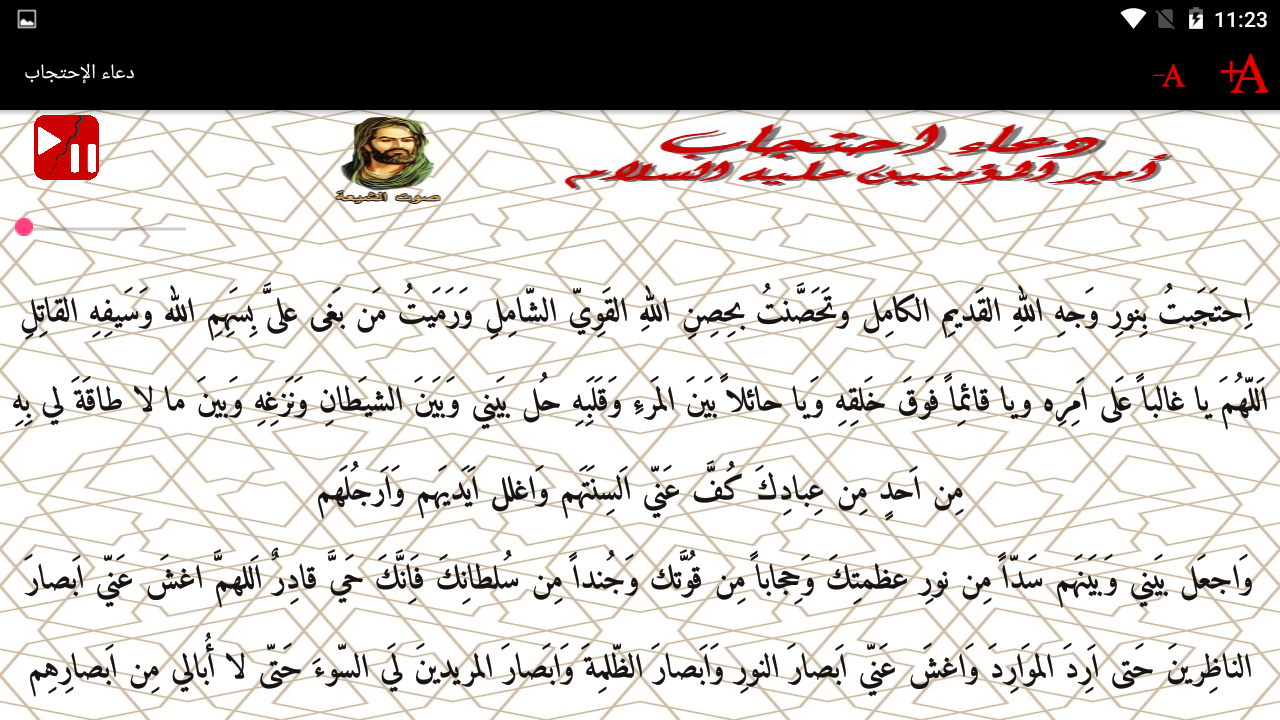 11:23
دعاء الإحتجاب
-A +A
دعاء احتجاب
أمير المؤمنين عليه السلام
صوت الشيعة
اِحتَجَبتُ بِنورِ وَجهِ اللهِ القَديمِ الكامِل وتَحَصَّنتُ بحِصِنِ اللهِ القَوِيّ الشّامِلِ وَرَمَيَتُ مَن بَغَى علىَّ بِسَهِمِ الله وَسَيفِهِ القاتِلِ
اَللّهُمَ يا غالباً عَلَى اَمرِه ويا قائمِاً فَوقَ خَلَقِهِ وَيا حائلاً بَينَ المَرءِ وَقَلَبِهِ حُل بيَنَي وَبَيَنَ الشيَطانِ وَنَزغِهِ وَبَينَ ما لا طاقَةَ لي بِهِ
مِن اَحدٍ مِن عِبادِكَ كُفَّ عَنّي اَلسِنَتَهم وَاغلل اَيَديهَم وَاَرجلُهَم
وَاجعَل بيَنَي وَبَيَنَهَم سَدّاً مِن نورِ عظمتِكَ وَحِجاباً مِن قوُتَّكَ وَجُنداً مِن سُلطانِكَ فَاِنَّكَ حَيَّ قادِرٌ اَللهمَّ اغشَ عَنّي اَبصارَ
الناظِرينَ حَتى اَرِدَ الموَارِدَ وَاغشَ عَنّي ابَصارَ النورِ وَاَبصارَ الظّلِمةَ وَابَصارَ المريدينَ لَيَ السّوءَ حَتّى لا أُبالي مِن اَبصارِهِم